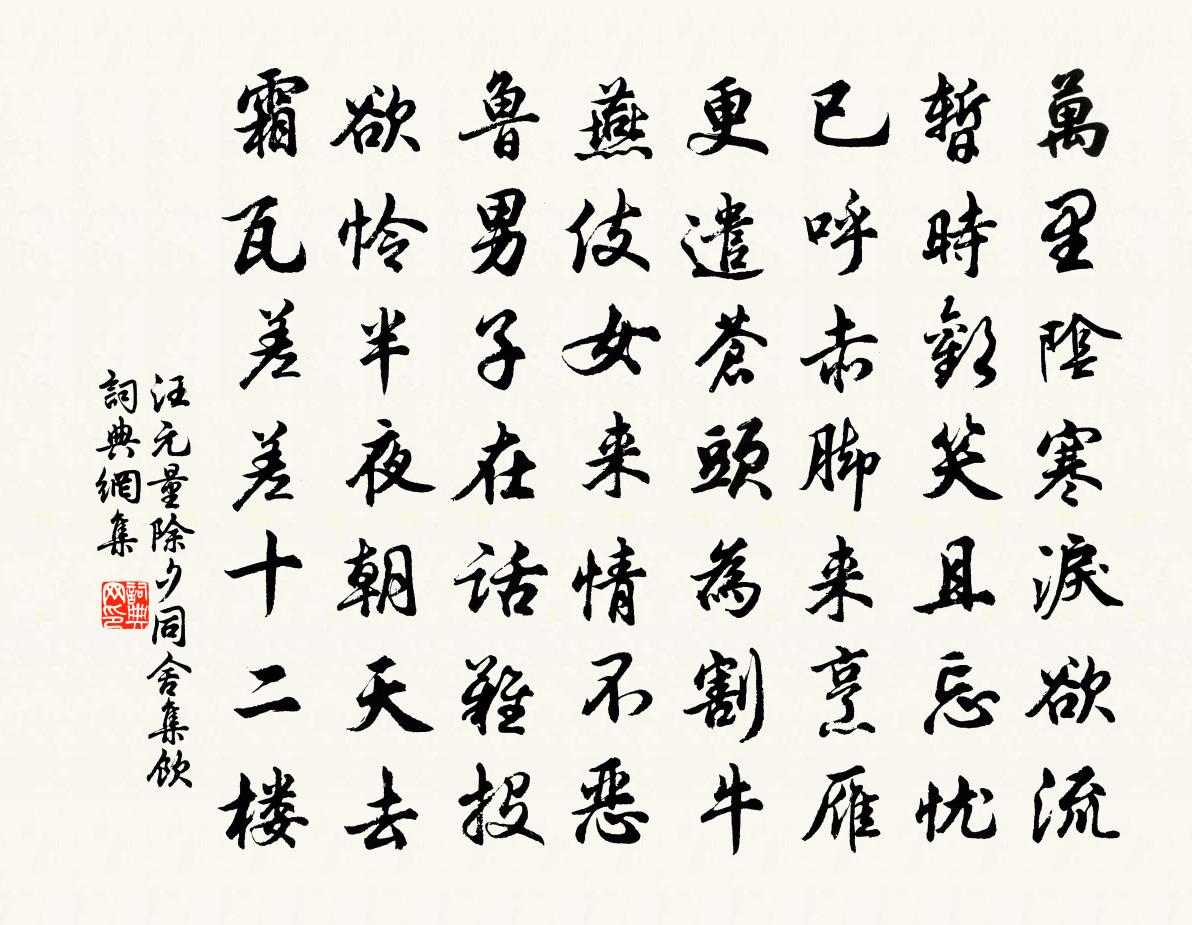 萬里陰寒淚欲流
暫時歡笑且忘忧
已呼赤脚来烹雁
更遣蒼頭為割牛
燕伎女来情不恶
魯男子在話難投
欲怜半夜朝天去
霜瓦差差十二楼
汪元量除夕同舍集飲
詞典網集
詞典
网印